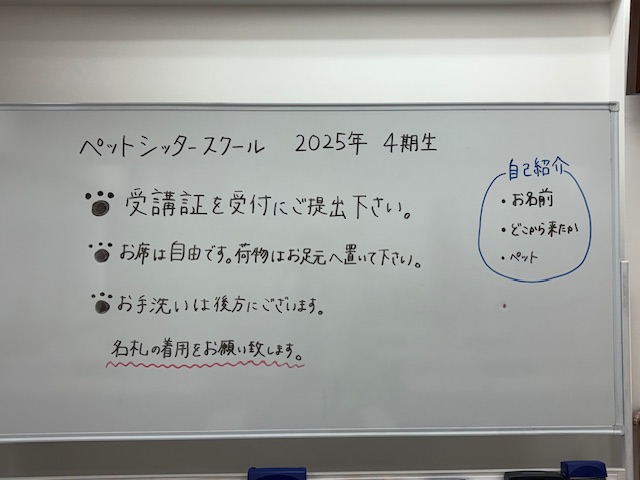 ペットシッタースクール 2025年 4期生
受講証を受付にご提出下さい。
お席は自由です。荷物はお足元へ置いて下さい。
お手洗いは後方にございます。
名札の着用をお願い致します。
自己紹介
・お名前
・どこから来たか
・ペット